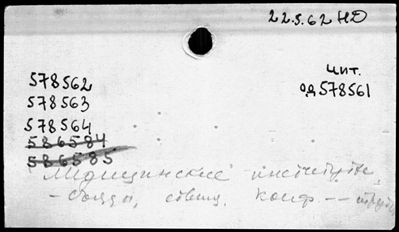 22.5.62 НД
чит.
од 578561
578562
578563
578564
586584
586585
Медицинские институты,
- съезды, совещ. конф. --